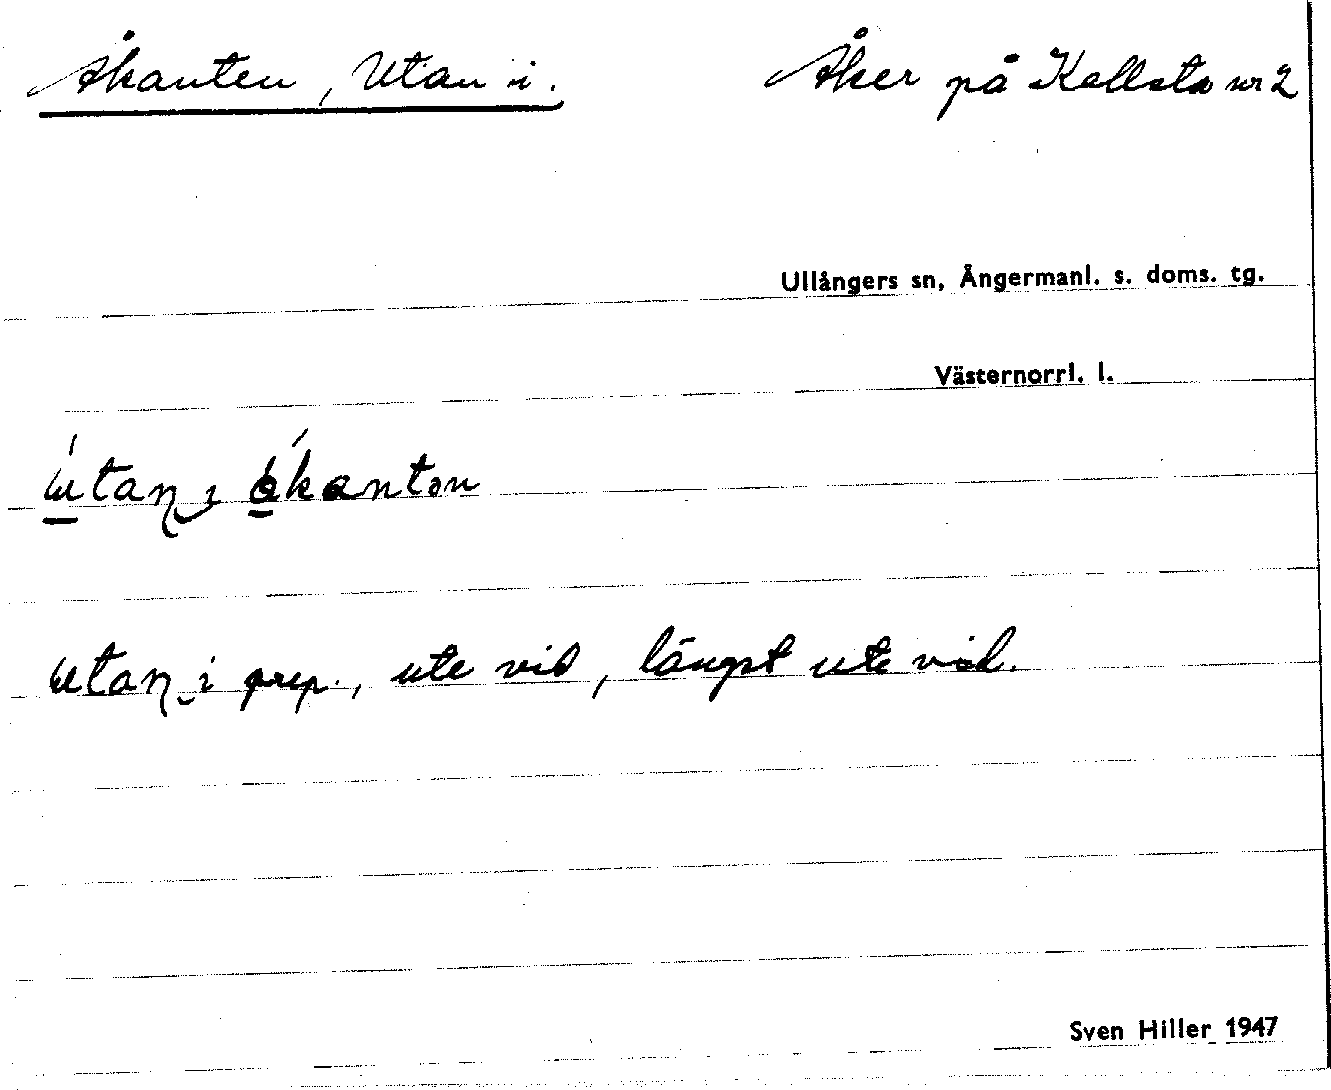 Åkanten, Utan i. Åker på Kallsta nr 2
Ullångers sn, Ångermanl. s. doms. tg.
Västernorrl. l.
utan i prep., ute vid, längst ute vid.
Sven Hiller 1947